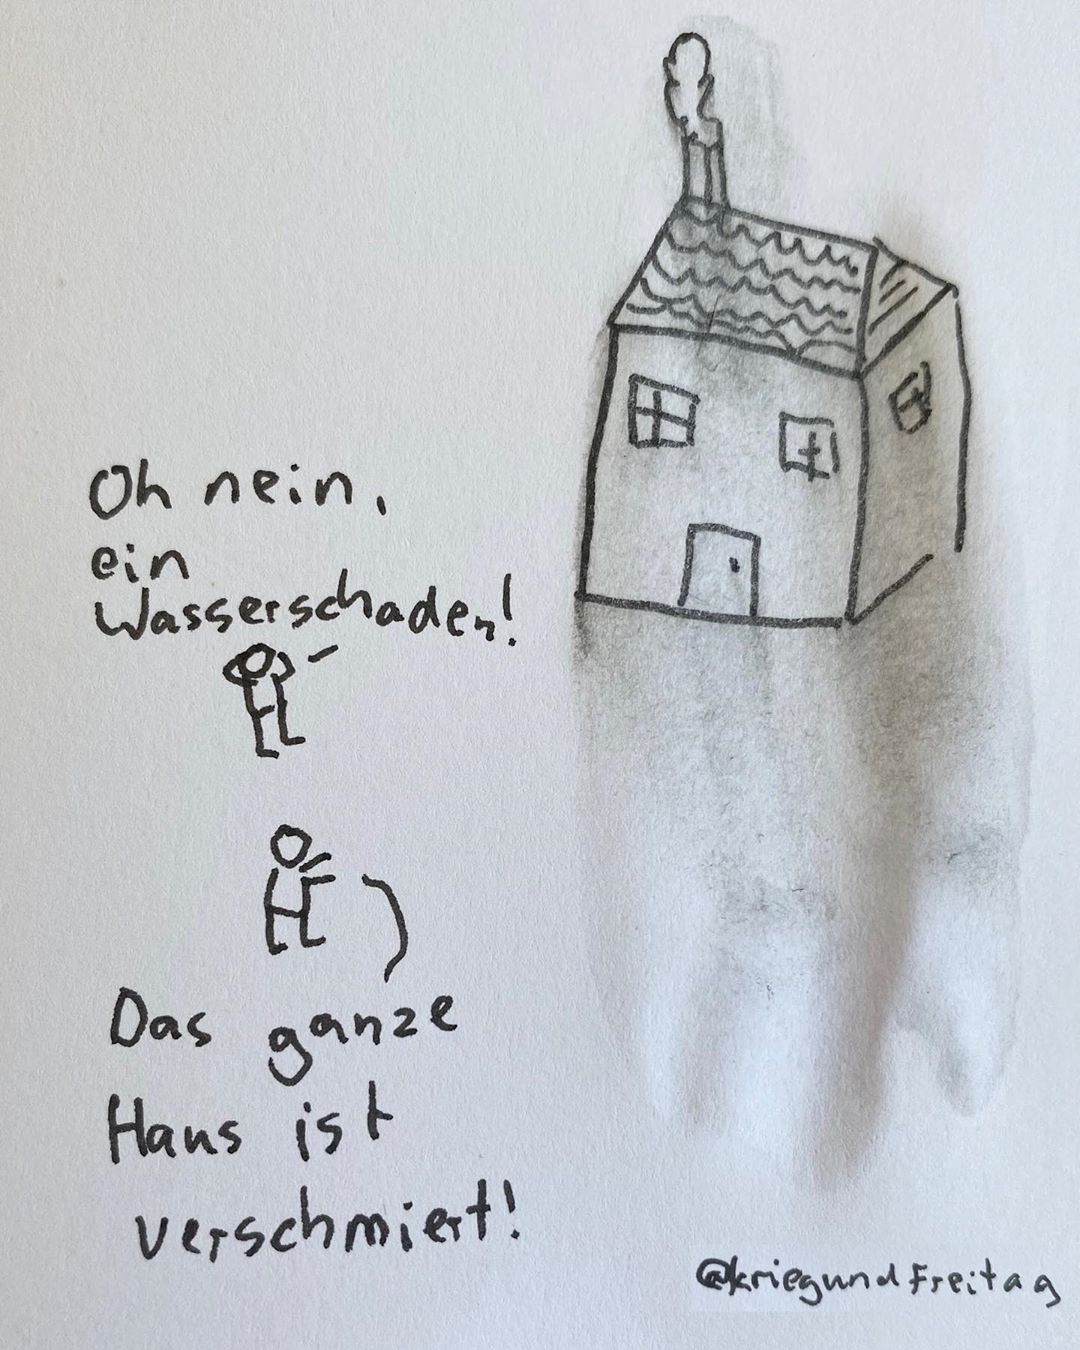 Oh nein,
ein
Wasserschaden!
Das ganze
Haus ist
verschmiert!
@kriegundFreitag